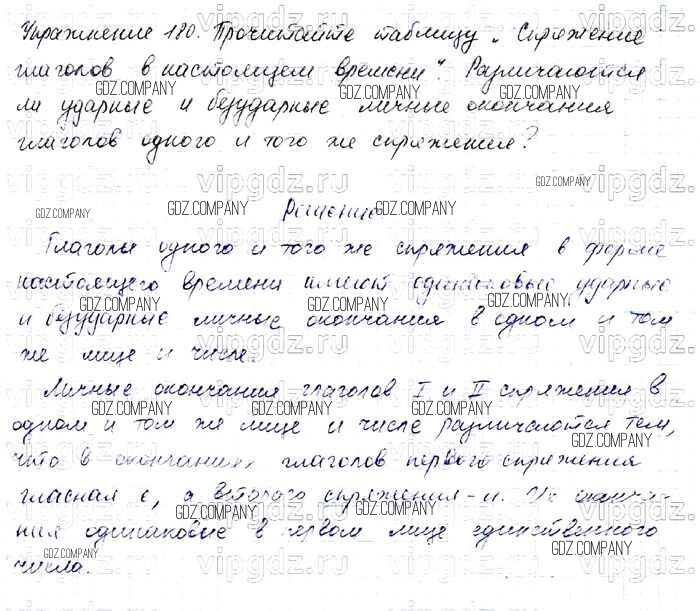 Упражнение 180. Прочитайте таблицу „Спряжение
глаголов в настоящем времени“. Различаются
ли ударные и безударные личные окончания
глаголов одного и того же спряжения?
Решение
Глаголы одного и того же спряжения в форме
настоящего времени имеют одинаковые ударные
и безударные личные окончания в одном и том
же лице и числе.
Личные окончания глаголов I и II спряжения в
одном и том же лице и числе различаются тем,
что в окончаниях глаголов первого спряжения
гласная е, а второго спряжения - и. Но оконча-
ния одинаковые в первом лице единственного
числа.